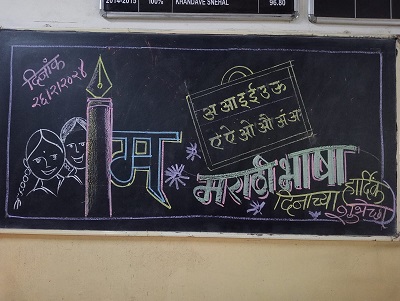 2014-2015 100% KHANDAVE SNEHAL 96.80
दिनांक
२६/२/२०२४
अ आ इ ई उ ऊ
ए ऐ ओ औ अं अः
म
मराठी भाषा
दिनाच्या हार्दिक
शुभेच्छा